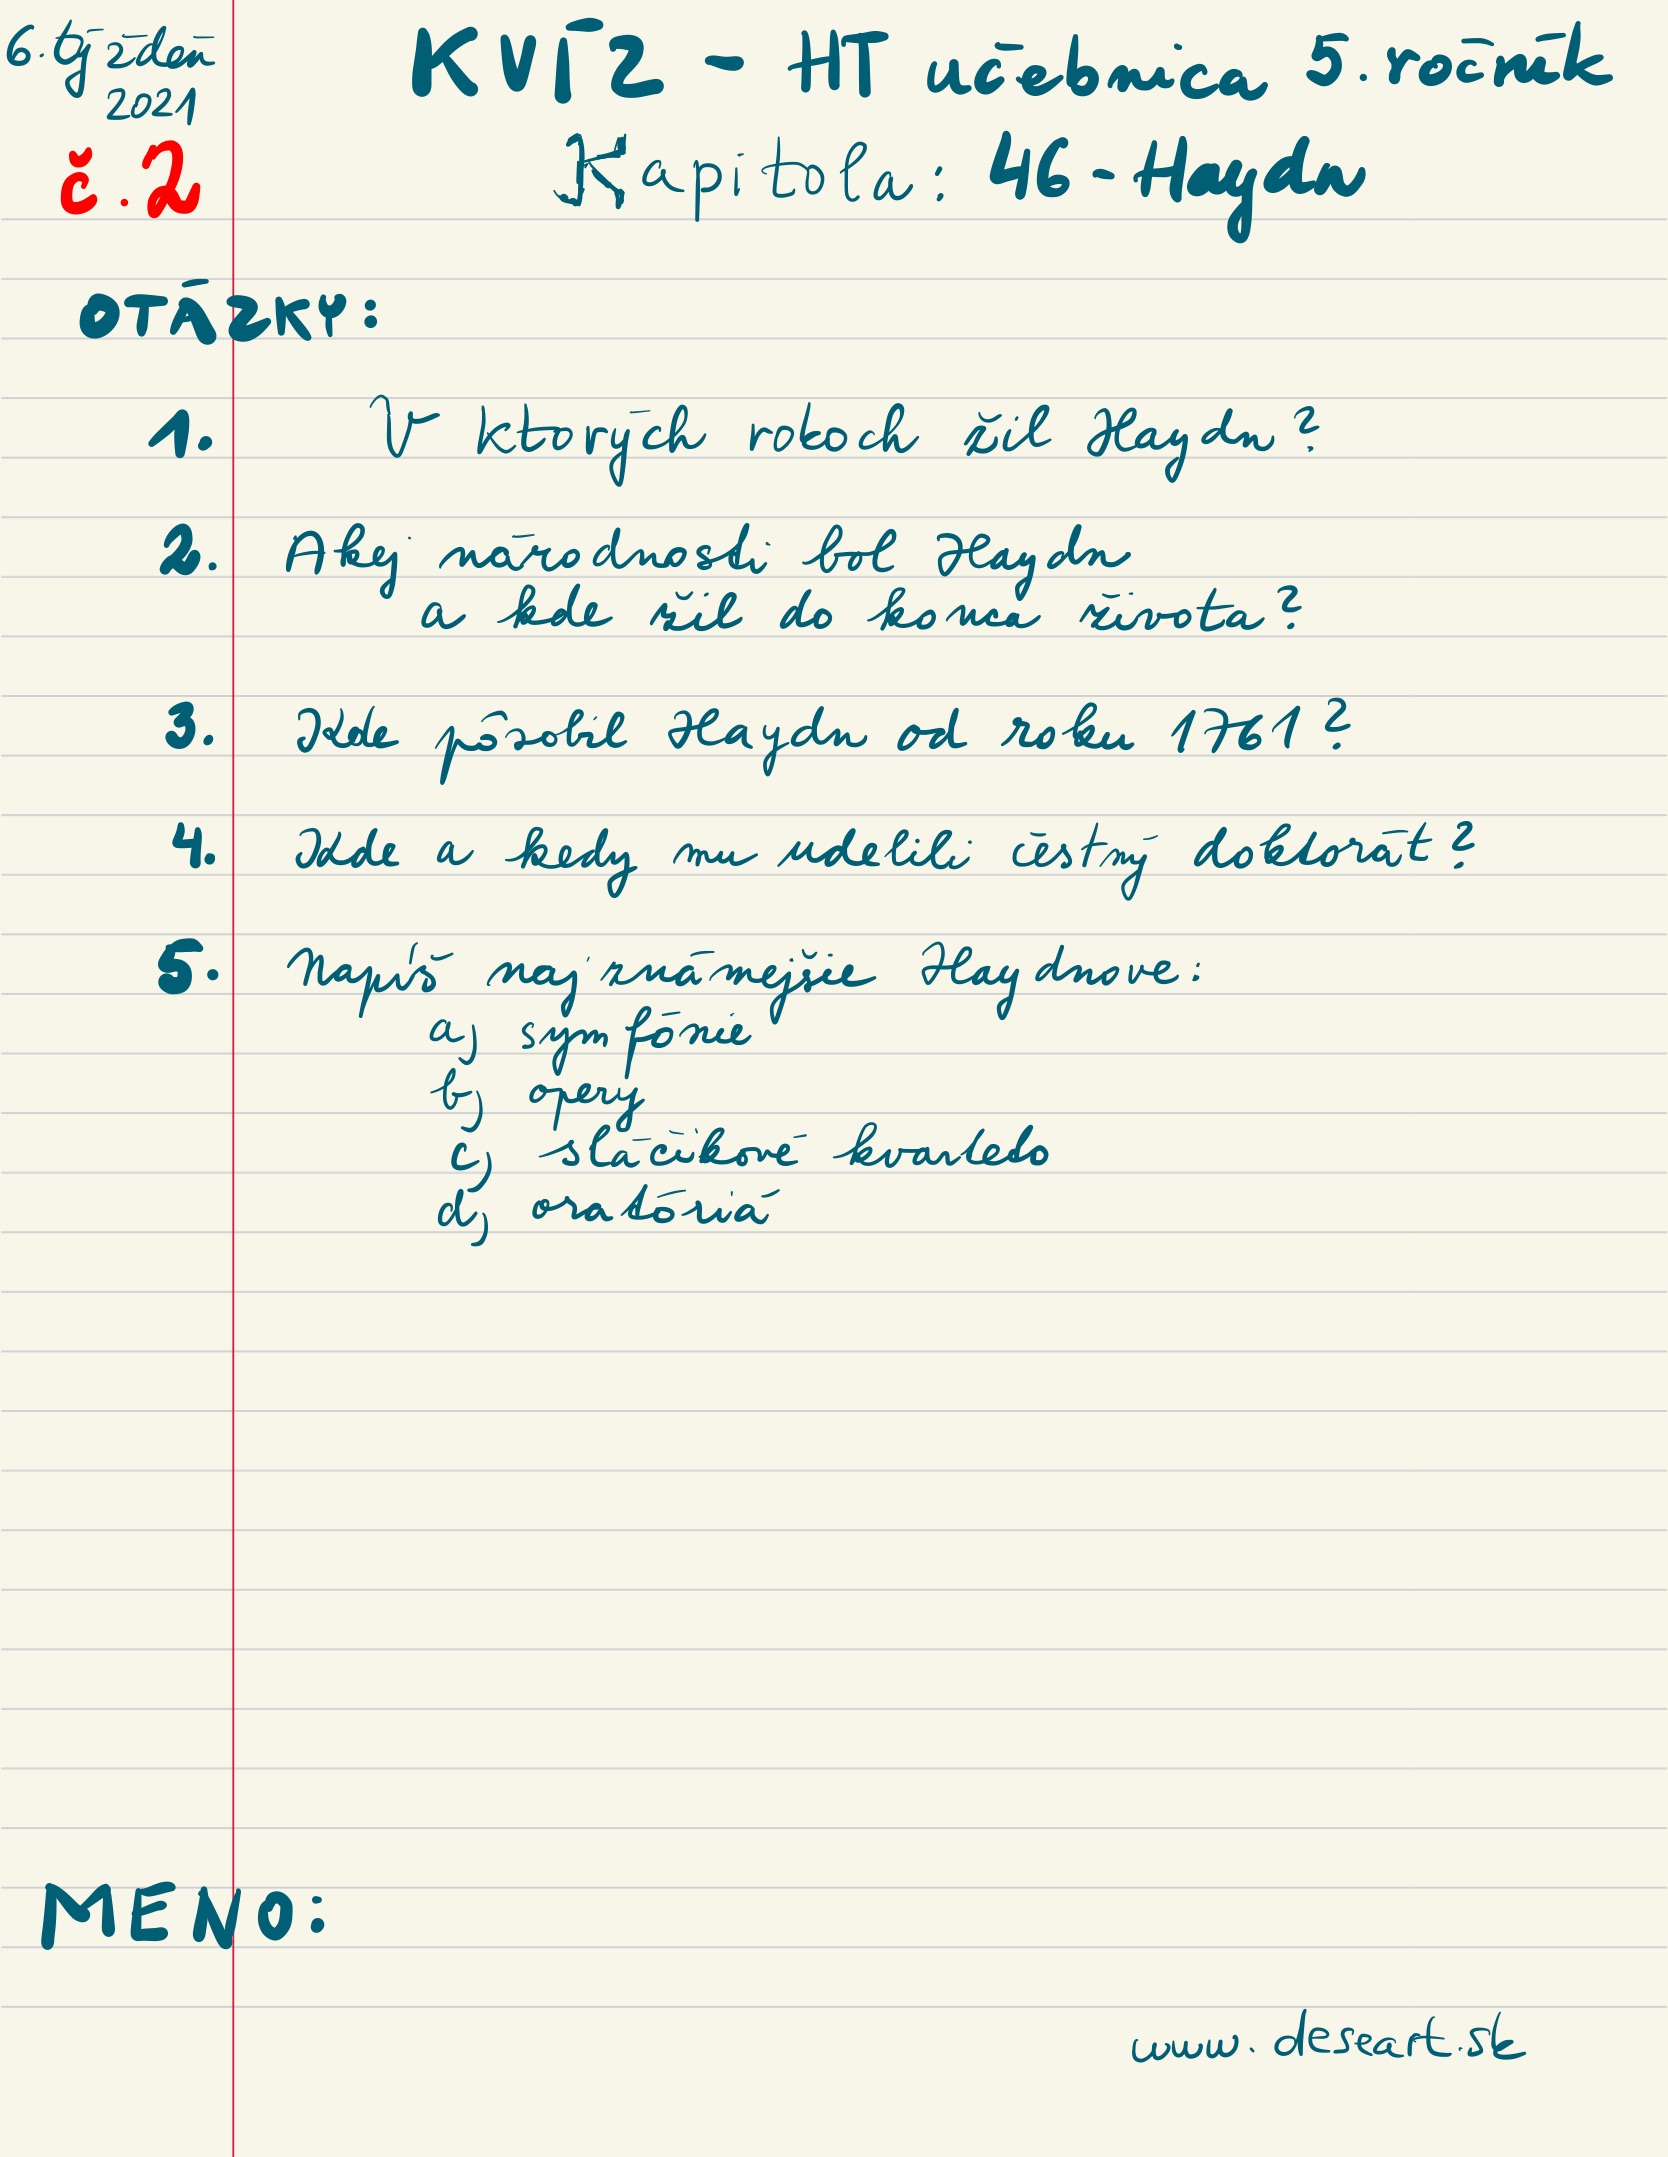 6. týždeň
2021
č.2
KVÍZ - HT učebnica 5. ročník
Kapitola: 46 - Haydn
OTÁZKY:
1. V ktorých rokoch žil Haydn?
2. Akej národnosti bol Haydn
a kde žil do konca života?
3. Kde pôsobil Haydn od roku 1761?
4. Kde a kedy mu udelili čestný doktorát?
5. Napíš najznámejšie Haydnove:
a) symfónie
b) opery
c) sláčikové kvarteto
d) oratóriá
MENO:
www.deseart.sk